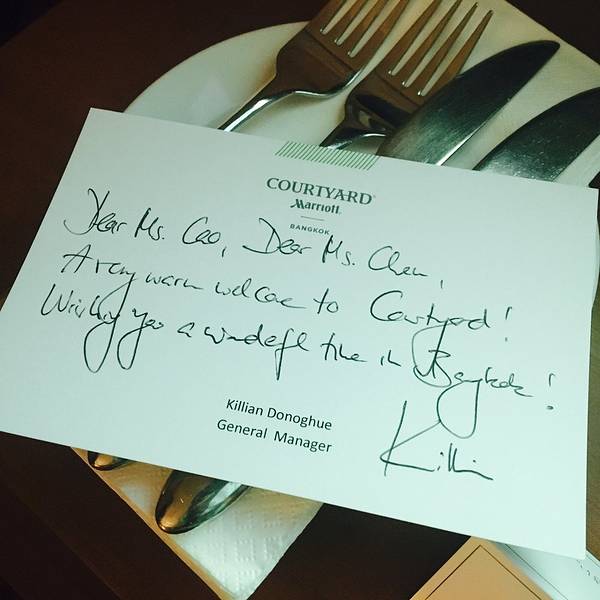 COURTYARD®
Marriott.
BANGKOK
Dear Ms. Cao, Dear Ms. Chen,
A very warm welcome to Courtyard!
Wishing you a wonderful time in Bangkok!
Killian Donoghue
General Manager
Killian